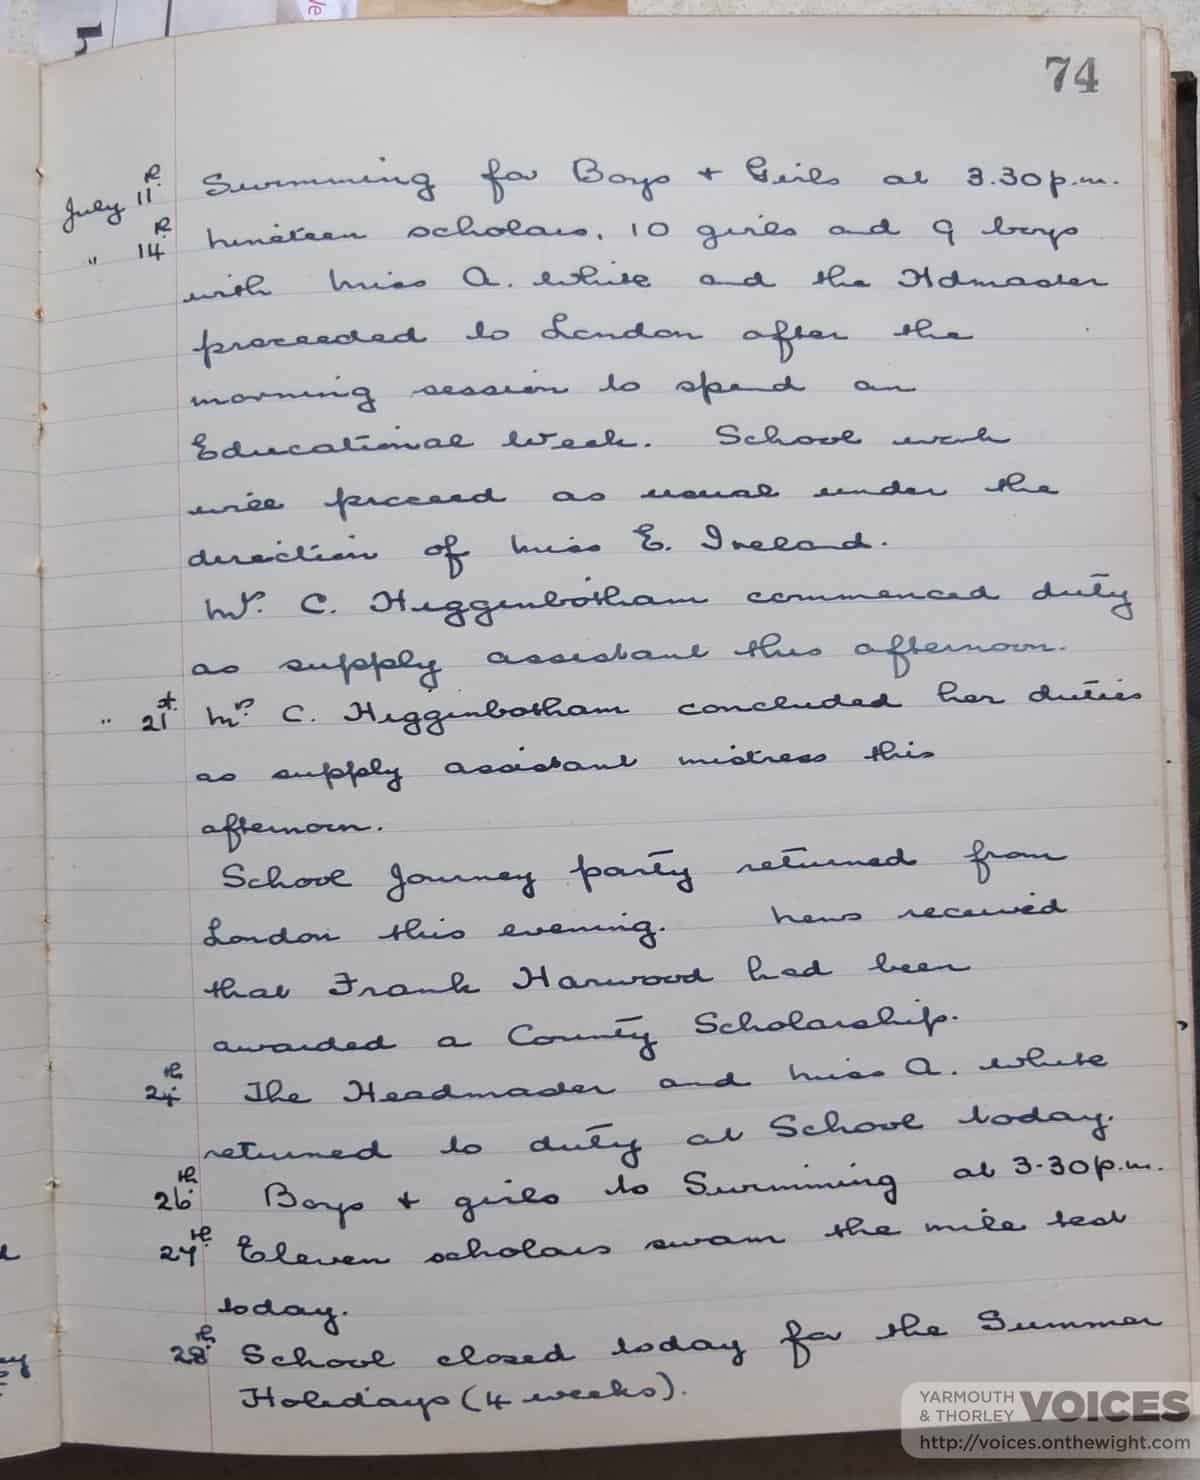 74
July 11th Swimming for Boys + Girls at 3.30 p.m.
" 14th Nineteen scholars, 10 girls and 9 boys
with Miss A. White and the Hdmaster
proceeded to London after the
morning session to spend an
Educational Week. School work
will proceed as usual under the
direction of Miss E. Ireland.
Mrs. C. Higgenbotham commenced duty
as supply assistant this afternoon.
" 21st. Mrs. C. Higgenbotham concluded her duties
as supply assistant mistress this
afternoon.
School Journey party returned from
London this evening. News received
that Frank Harwood had been
awarded a County Scholarship.
24th The Headmaster and Miss A. White
returned to duty at School today.
26th Boys + girls to Swimming at 3.30 p.m.
27th Eleven scholars swam the mile test
today.
28th School closed today for the Summer
Holidays (4 weeks).
YARMOUTH & THORLEY VOICES
http://voices.onthewight.com